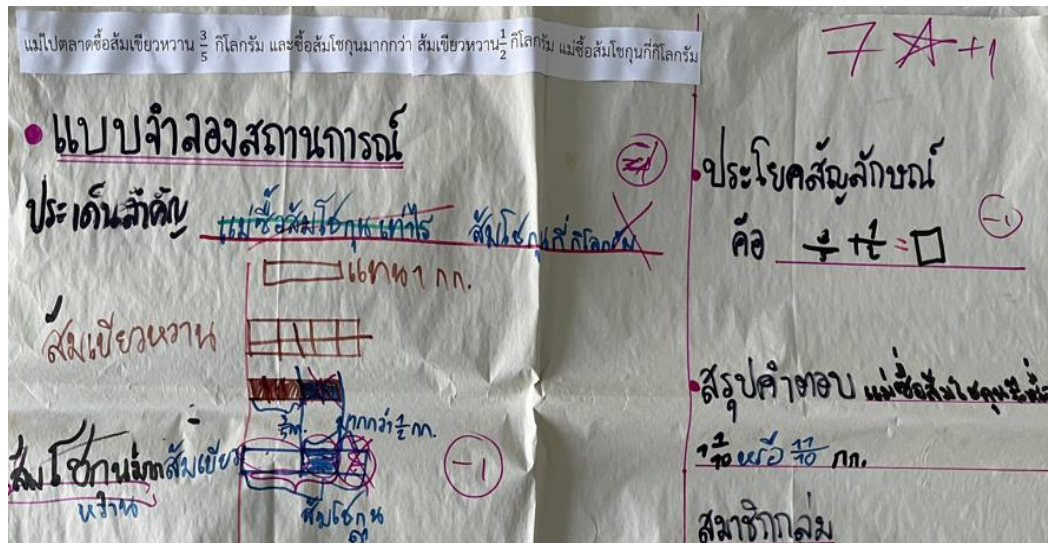 แม่ไปตลาดซื้อส้มเขียวหวาน 3/5 กิโลกรัม และซื้อส้มโชกุนมากกว่า ส้มเขียวหวาน 1/2 กิโลกรัม แม่ซื้อส้มโชกุนกี่กิโลกรัม
7 +1
• แบบจำลองสถานการณ์
ประเด็นสำคัญ แม่ซื้อส้มโชกุนเท่าไร ส้มโชกุนกี่กิโลกรัม
แทน 1 กก.
ส้มเขียวหวาน
มากกว่า 1/2 กก.
ส้มโชกุน ส้มเขียว
หวาน
-1
ส้มโชกุน
• ประโยคสัญลักษณ์
-1
คือ 3/5 + 1/2 = □
• สรุปคำตอบ แม่ซื้อส้มโชกุน
1 1/10 หรือ 11/10 กก.
สมาชิกกลุ่ม